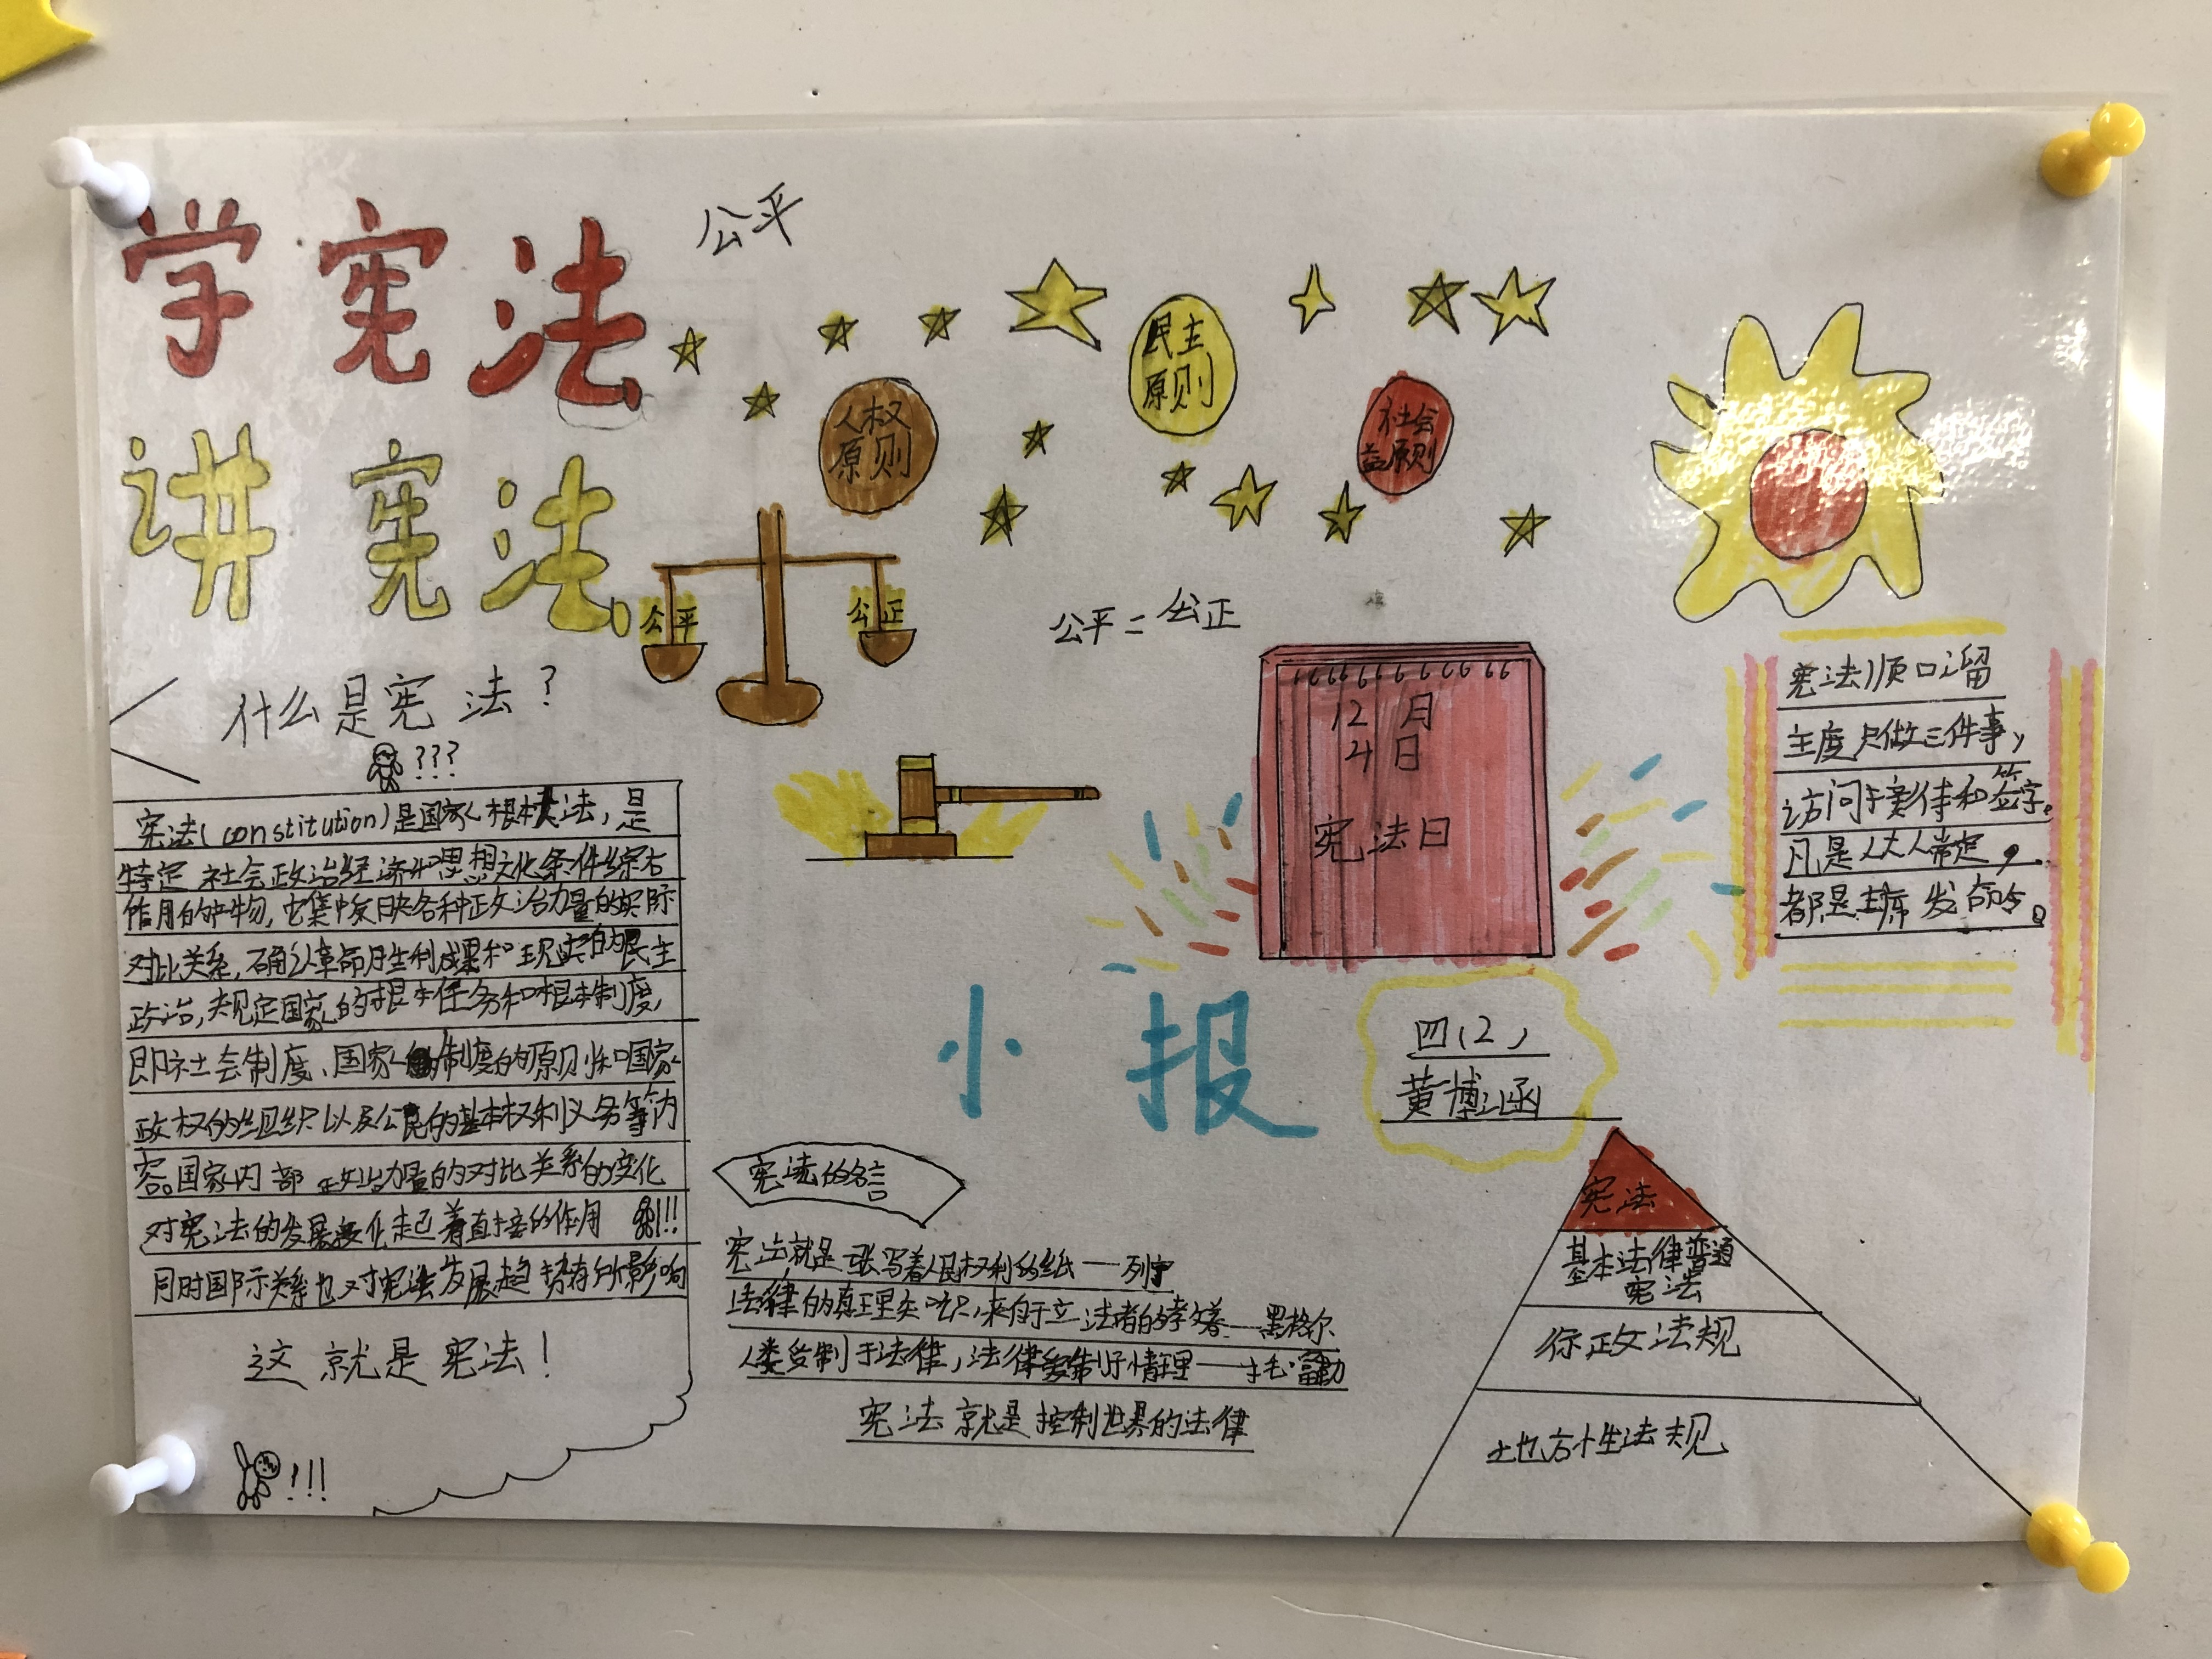 学宪法
讲宪法
公平
人权
原则
民主
原则
社会
益原则
公平
公正
公平=公正
什么是宪法?
???
宪法(constitution)是国家根本大法,是
特定社会政治经济和思想文化条件综合
作用的产物,它集中反映各种政治力量的实际
对比关系,确认革命胜利成果和现实的民主
政治,规定国家的根本任务和根本制度,
即社会制度、国家制度的原则和国家
政权的组织以及公民的基本权利义务等内
容。国家内部政治力量的对比关系的变化
对宪法的发展变化起着直接的作用 !!!
同时国际关系也对宪法发展趋势有所影响
这就是宪法!
!!!
12月
4日
宪法日
宪法顺口溜
主度只做三件事,
访问于接待和签字。
凡是人大人常定,
都是主席发命令。
小报
四(2)
黄博涵
宪法的名言
宪法就是一张写着人民权利的纸——列宁
法律的真理知识,来自于立法者的教养——黑格尔
人类受制于法律,法律受制于情理——托·富勒
宪法就是控制世界的法律
宪法
基本法律普通
宪法
行政法规
地方性法规